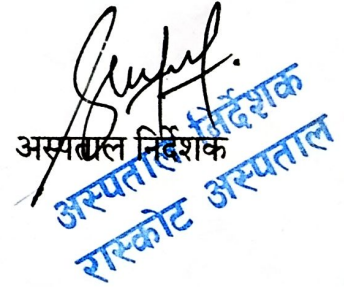 अस्पताल निर्देशक
अस्पताल निर्देशक
रास्कोट अस्पताल